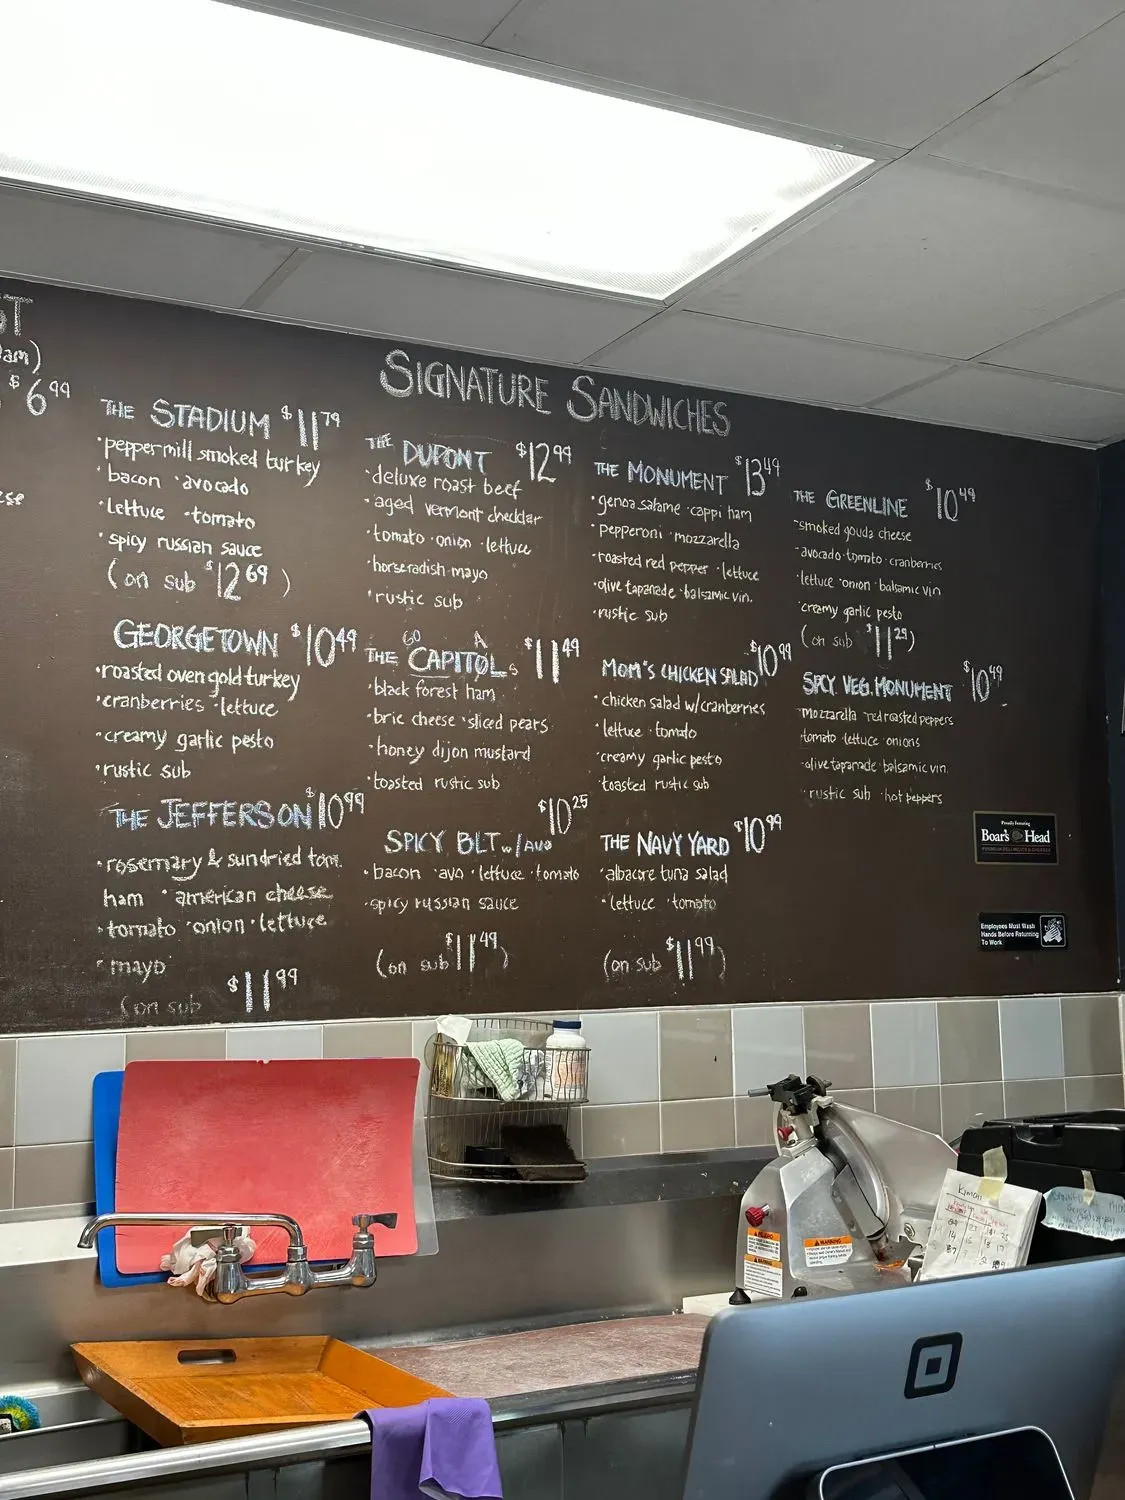 ST
am)
$6.99
SIGNATURE SANDWICHES
THE STADIUM $11.79
·peppermill smoked turkey
·bacon ·avocado
·lettuce ·tomato
·spicy russian sauce
(on sub $12.69)
GEORGETOWN $10.49
·roasted oven gold turkey
·cranberries ·lettuce
·creamy garlic pesto
·rustic sub
THE JEFFERSON $10.99
·rosemary & sundried tom.
ham ·american cheese
·tomato ·onion ·lettuce
·mayo
(on sub $11.99
THE DUPONT $12.99
·deluxe roast beef
·aged vermont cheddar
·tomato ·onion ·lettuce
·horseradish mayo
·rustic sub
GO A
THE CAPITOLS $11.49
·black forest ham
·brie cheese ·sliced pears
·honey dijon mustard
·toasted rustic sub
$10.25
SPICY BLT w/AVO
·bacon ·avo ·lettuce ·tomato
·spicy russian sauce
(on sub $11.49)
THE MONUMENT $13.49
·genoa salame ·cappi ham
·pepperoni ·mozzarella
·roasted red pepper ·lettuce
·olive tapanade ·balsamic vin.
·rustic sub
MOM'S CHICKEN SALAD $10.99
·chicken salad w/cranberries
·lettuce ·tomato
·creamy garlic pesto
·toasted rustic sub
THE NAVY YARD $10.99
·albacore tuna salad
·lettuce ·tomato
(on sub $11.99)
THE GREENLINE $10.49
·smoked gouda cheese
·avocado ·tomato ·cranberries
·lettuce ·onion ·balsamic vin
·creamy garlic pesto
(on sub $11.29)
SPCY. VEG. MONUMENT $10.49
·mozzarella ·red roasted peppers
·tomato ·lettuce ·onions
·olive tapanade ·balsamic vin.
·rustic sub ·hot peppers
Proudly Featuring
Boar's Head
PREMIUM DELI MEATS & CHEESES
Employees Must Wash
Hands Before Returning
To Work
WARNING
WARNING
Kimon